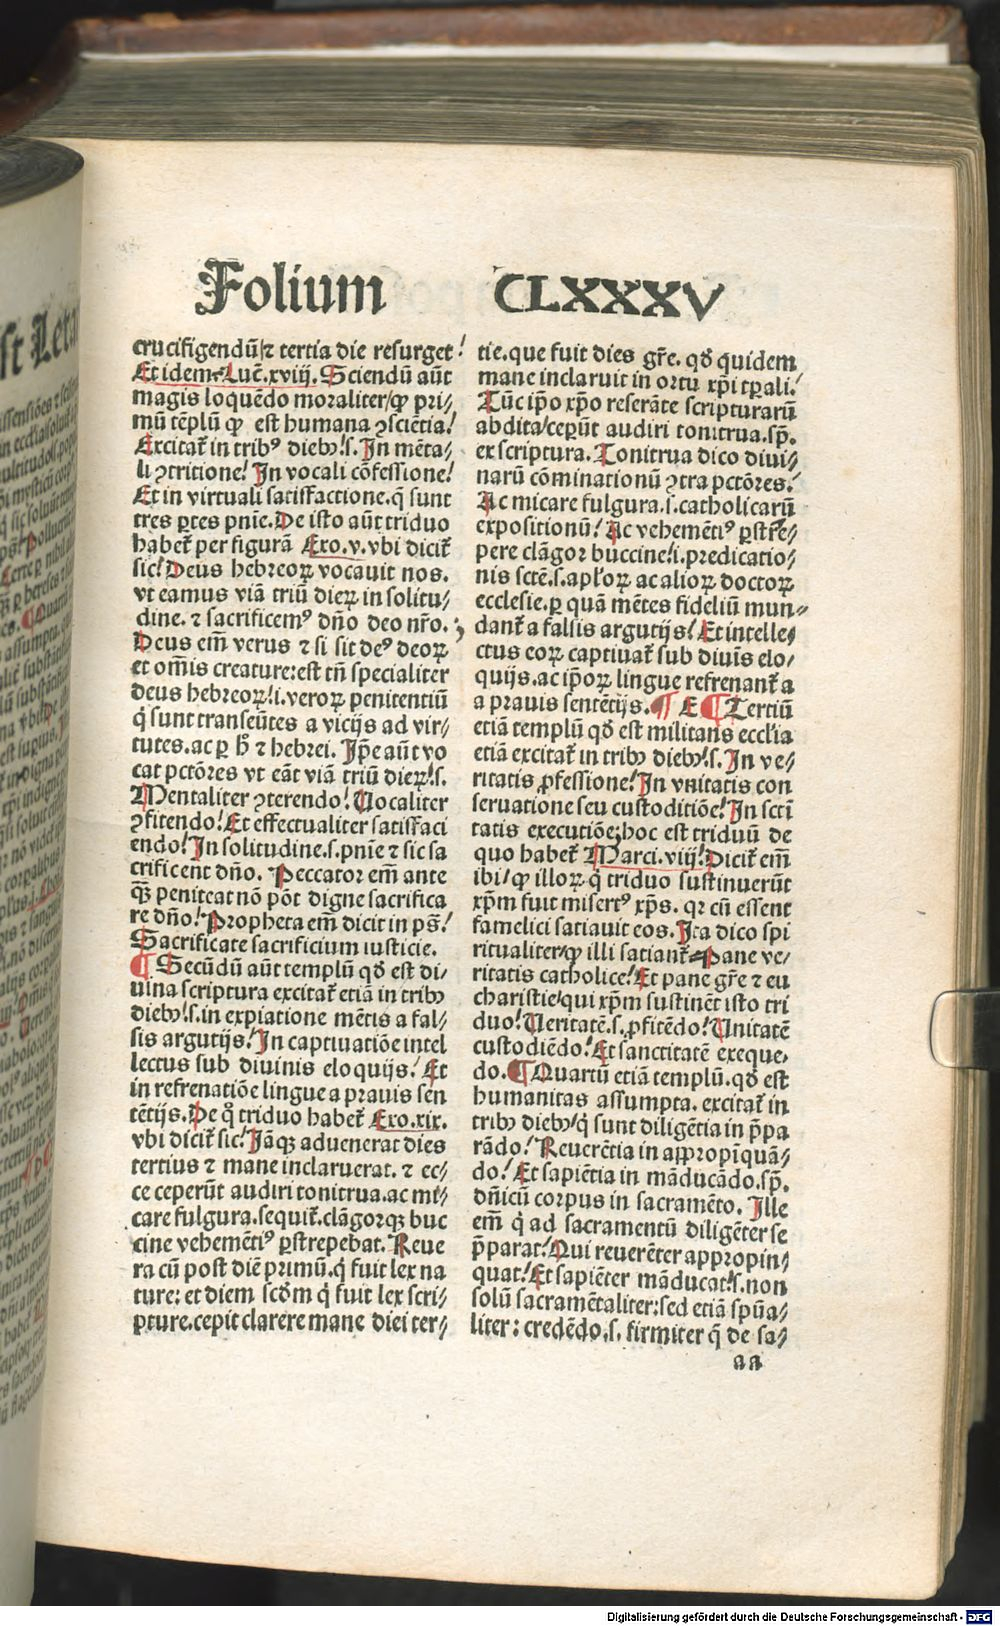 Folium CLXXXV
crucifigendū/⁊ tertia die resurget!
Et idem Luc̄.xviij. Sciendū aūt
magis loquēdo moraliter/ꝙ pri/
mū tēplū ꝙ est humana ꝯsciētia!
Excitat̄ in tribꝰ diebꝰ!s. In mēta/
li ꝯtritione! In vocali cōfessione!
Et in virtuali satisfactione.q̄ sunt
tres ꝑtes pnīe. De isto aūt triduo
habet̄ per figurā Exo.v.vbi dicit̄
sic! Deus hebreoꝝ vocauit nos.
vt eamus viā triū dieꝝ in solitu/
dine. ⁊ sacrificemꝰ dn̄o deo nr̄o.
Deus em̄ verus ⁊ si sit deꝰ deoꝝ
et om̄is creature:est tn̄ specialiter
deus hebreoꝝ!i.veroꝝ penitentiū
q̇ sunt transeūtes a vicijs ad vir/
tutes.ac ꝑ h̄ ⁊ hebrei. Ip̄e aūt vo
cat pctōres vt eāt viā triū dieꝝ!s.
Mentaliter ꝯterendo! Vocaliter
ꝯfitendo! Et effectualiter satisfaci
endo! In solitudine.s.pnīe ⁊ sic sa
crificent dn̄o. Peccator em̄ ante
qꝫ peniteat nō pōt digne sacrifica
re dn̄o! Propheta em̄ dicit in ps̄!
Sacrificate sacrificium iusticie.
¶ Secūdū aūt templū qđ est di/
uina scriptura excitat̄ etiā in tribꝰ
diebꝰ!s.in expiatione mētis a fal/
sis argutijs! In captiuatiōe intel
lectus sub diuinis eloquijs! Et
in refrenatiōe lingue a prauis sen
tētijs. De q̊ triduo habet̄ Exo.xix.
vbi dicit̄ sic! Iāqꝫ aduenerat dies
tertius ⁊ mane inclaruerat. ⁊ ec/
ce ceperūt audiri tonitrua.ac mi/
care fulgura.sequit̄.clāgorqꝫ buc
cine vehemētiꝰ ꝑstrepebat. Reue
ra cū post diē primū.q̇ fuit lex na
ture: et diem scd̄m q̇ fuit lex scri/
pture.cepit clarere mane diei ter/
tie.que fuit dies gr̄e. qđ quidem
mane inclaruit in ortu xp̄i tp̄ali!
Tūc ip̄o xp̄o reserāte scripturarū
abdita/cepūt audiri tonitrua.sp̄.
ex scriptura. Tonitrua dico diui/
narū cōminationū ꝯtra pctōres!
Ac micare fulgura.s.catholicarū
expositionū! Ac vehemētiꝰ ꝑstre/
pere clāgor buccine!i.predicatio/
nis sctē.s.apl̄oꝝ ac alioꝝ doctoꝝ
ecclesie.ꝑ quā mētes fideliū mun/
dant̄ a falsis argutijs! Et intelle/
ctus eoꝝ captiuāt̄ sub diuīs elo/
quijs.ac ip̄oꝝ lingue refrenant̄ a
a prauis sentētijs. ¶ E ¶ Tertiū
etiā templū qđ est militans eccl̄ia
etiā excitat̄ in tribꝰ diebꝰ!s. In ve/
ritatis ꝓfessione! In vnitatis con
seruatione seu custoditiōe! In sctī
tatis executiōe;hoc est triduū de
quo habet̄ Marci.viij! Dicit em̄
ibi/ꝙ illoꝝ q̇ triduo sustinuerūt
xp̄m fuit misertꝰ xp̄s. qꝛ cū essent
famelici satiauit eos. Ita dico spi
ritualiter/ꝙ illi satiant̄ Pane ve/
ritatis catholice! Et pane gr̄e ⁊ eu
charistie/qui xp̄m sustinēt isto tri
duo! Veritatē.s.ꝓfitēdo! Vnitatē
custodiēdo! Et sanctitatē exeque/
do. ¶ Quartū etiā templū.qđ est
humanitas assumpta. excitat̄ in
tribꝰ diebꝰ/q̇ sunt diligētia in p̄pa
rādo! Reuerētia in appropīquā/
do! Et sapiētia in māducādo.sp̄.
dn̄icū corpus in sacramēto. Ille
em̄ q̇ ad sacramentū diligēter se
p̄parat! Qui reuerēter appropin/
quat! Et sapiēter māducat!s.non
solū sacramētaliter:sed etiā spūa/
liter: credēdo.s. firmiter q̄ de sa/
aa
Digitalisierung gefördert durch die Deutsche Forschungsgemeinschaft - DFG